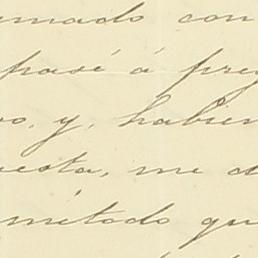 mado con
pasé á preg
o, y, habien
esta, me d
método qu